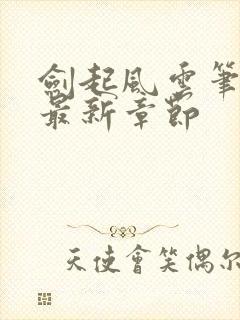 劍起風雲筆
最新章節
天使會笑偶尔